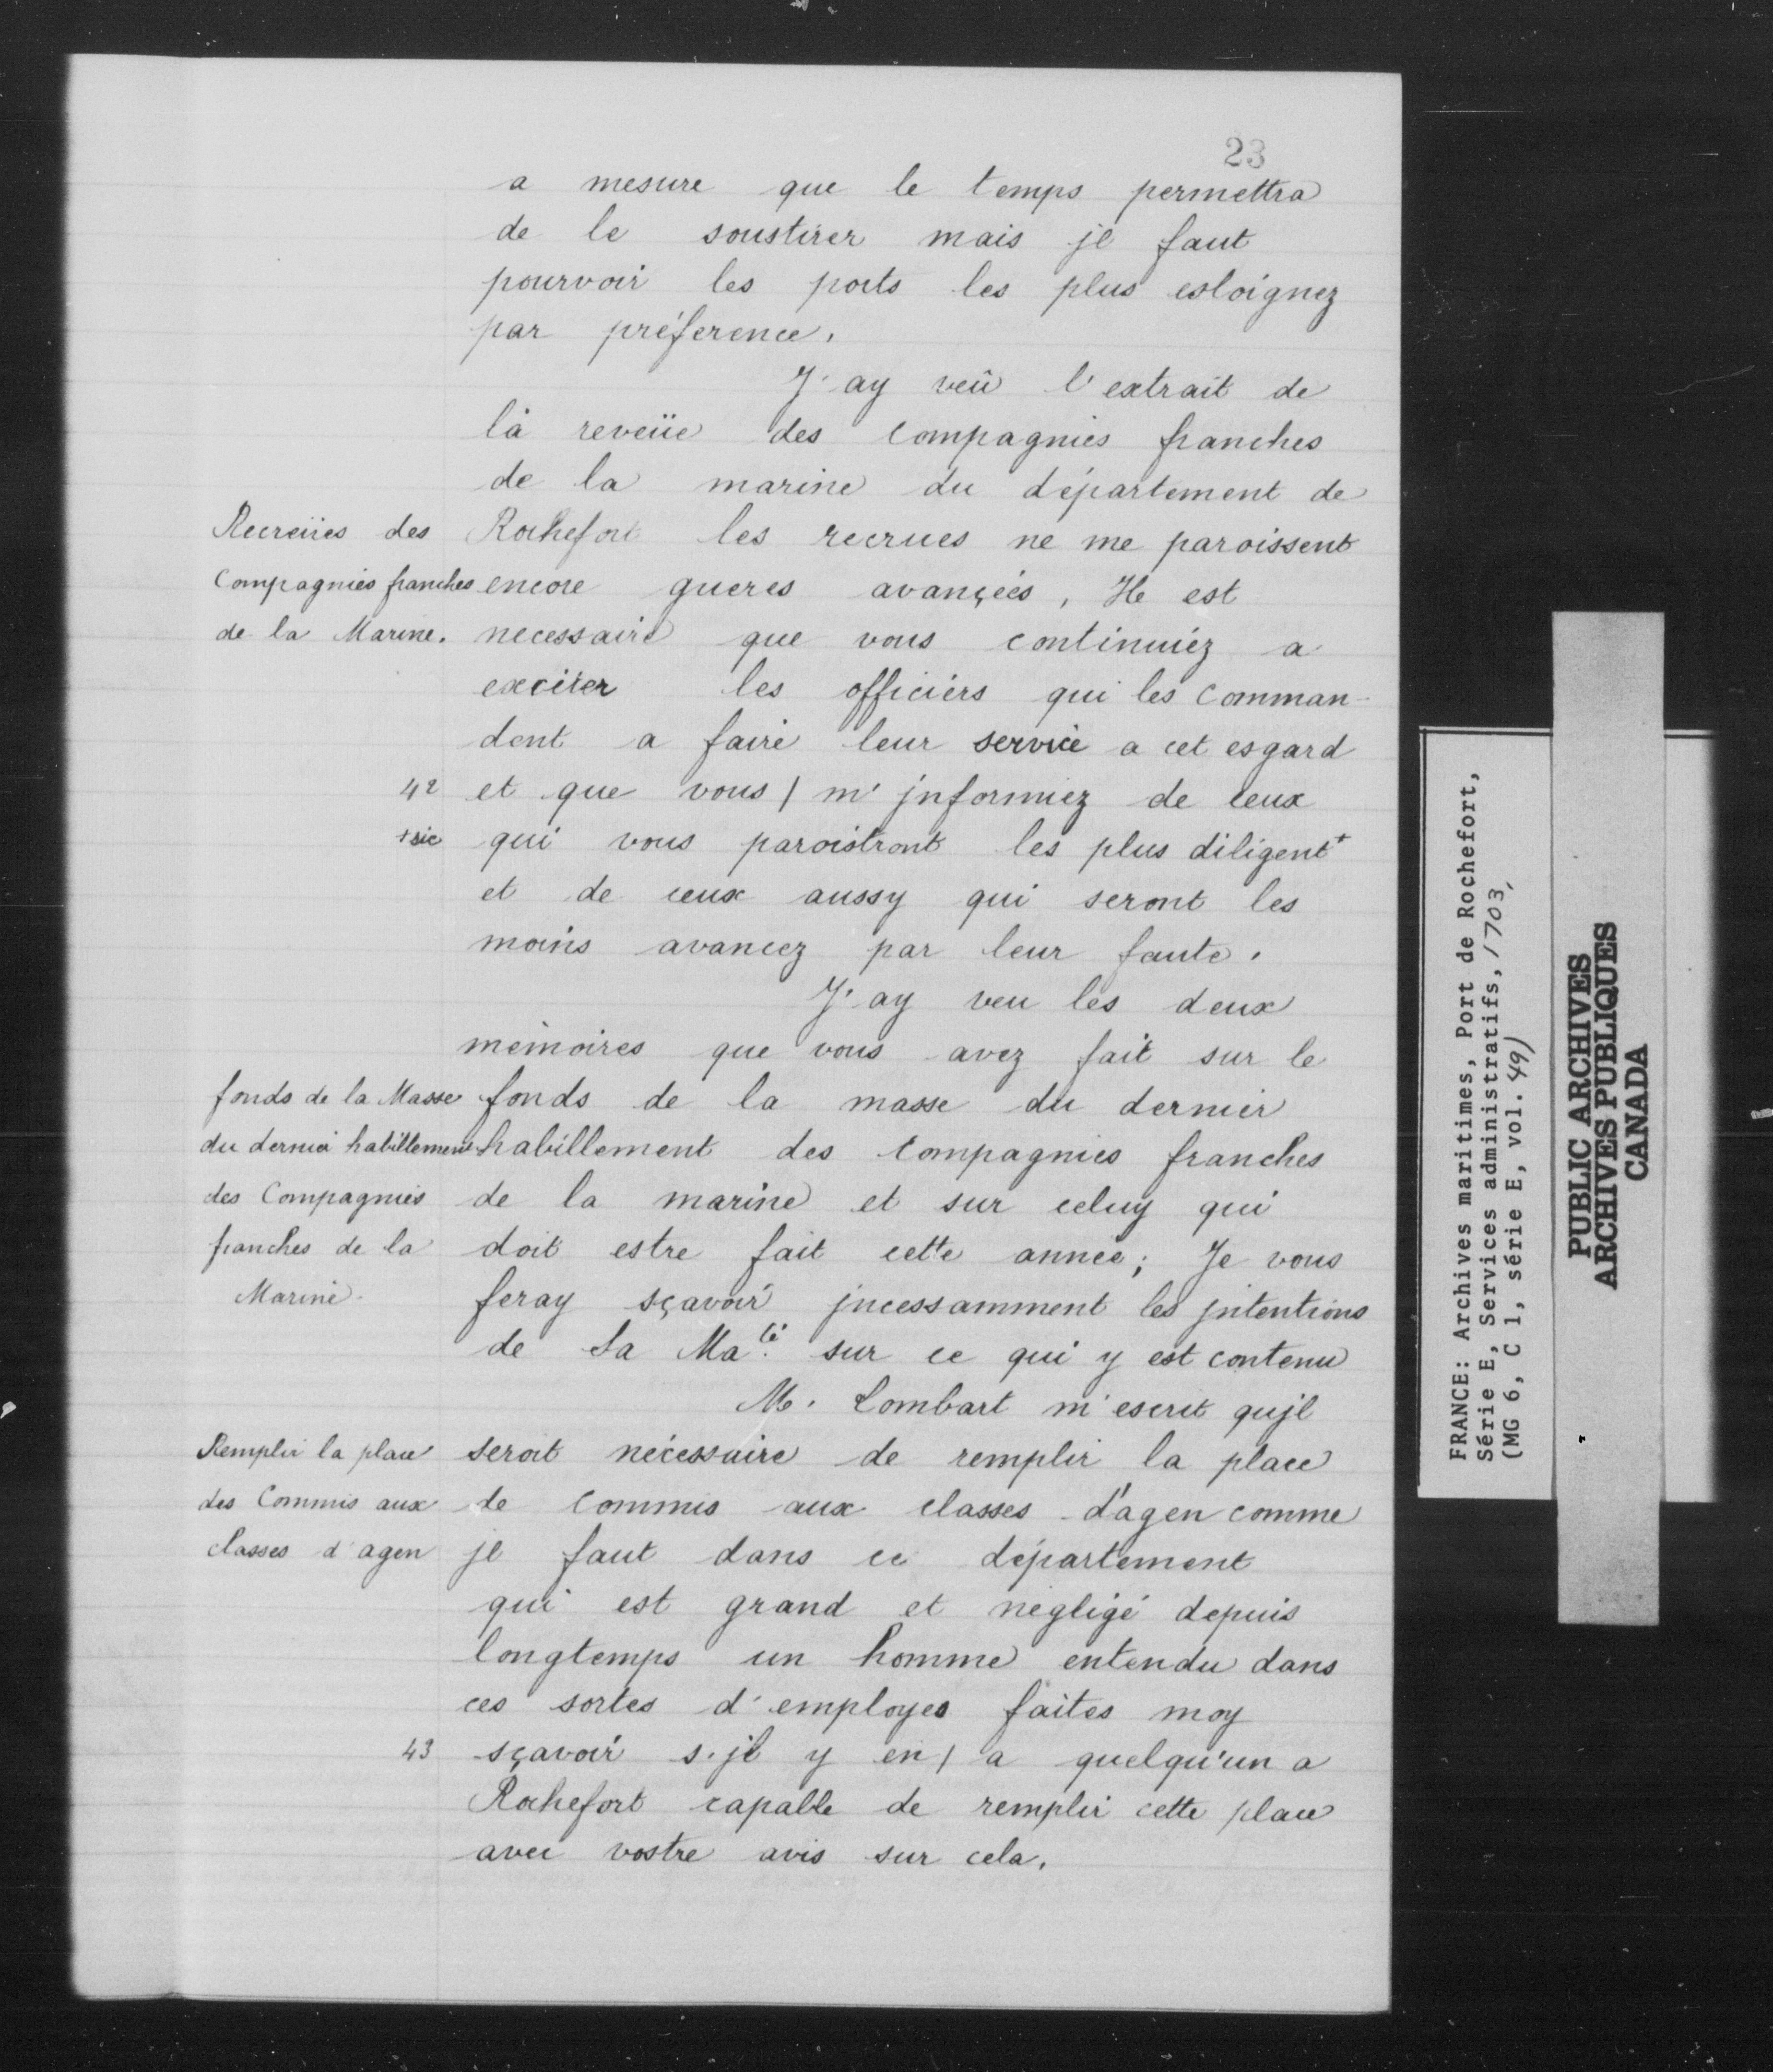 23
a mesure que le temps permettra
de le soustirer mais jl faut
pourvoir les ports les plus esloignez
par préference.
J'ay veû l'extrait de
la reveüe des Compagnies franches
de la marine du département de
Recreües des
Compagnies franches
de la Marine.
Rochefort les recrues ne me paroissent
encore gueres avançées, Il est
necessaire que vous continuiéz a
exciter les officiers qui les comman-
dent a faire leur service a cet esgard
42
et que vous / m'jnformiez de ceux
+ sic
qui vous paroistront les plus diligent+
et de ceux aussy qui seront les
moins avancez par leur faute.
J'ay veu les deux
mémoires que vous avez fait sur le
fonds de la Masse
du dernier habillement
des Compagnies
franches de la
Marine.
fonds de la masse du dernier
habillement des Compagnies franches
de la marine et sur celuy qui
doit estre fait cette année; Je vous
feray sçavoir jncessamment les jntentions
de Sa Ma.té sur ce qui y est contenu
M. Lombart m'escrit qujl
Remplir la place
des Commis aux
classes d'agen
seroit nécessaire de remplir la place
de Commis aux classes d'agen comme
jl faut dans ce département
qui est grand et négligé depuis
longtemps un homme entendu dans
ces sortes d'employes faites moy
43
sçavoir s'jl y en / a quelqu'un a
Rochefort capable de remplir cette place
avec vostre avis sur cela.
FRANCE: Archives maritimes, Port de Rochefort,
Série E, Services administratifs, 1703,
(MG 6, C 1, série E, vol. 49)
PUBLIC ARCHIVES
ARCHIVES PUBLIQUES
CANADA